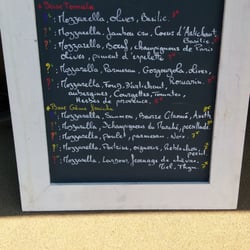 Base Tomate
: Mozzarella, Olives, Basilic.
: Mozzarella, Jambon cru, Coeur d'Artichaut
Basilic
: Mozzarella, Boeuf, champignons de Paris
Olives, piment d'espelette
: Mozzarella, Parmesan, Gorgonzola, olives,
Romarin
: Mozzarella, Tons, D'artichaut,
aubergines, Courgettes, Tomates,
Herbes de provence.
Base Crème fraîche
: Mozzarella, Saumon, Aneth
: Mozzarella, champignons du Marché, persillade
: Mozzarella, Poulet, parmesan, Noix.
: Mozzarella, oignons, Reblochon,
persil
: Mozzarella, Lardons, fromage de chèvre,
Miel, Thym.